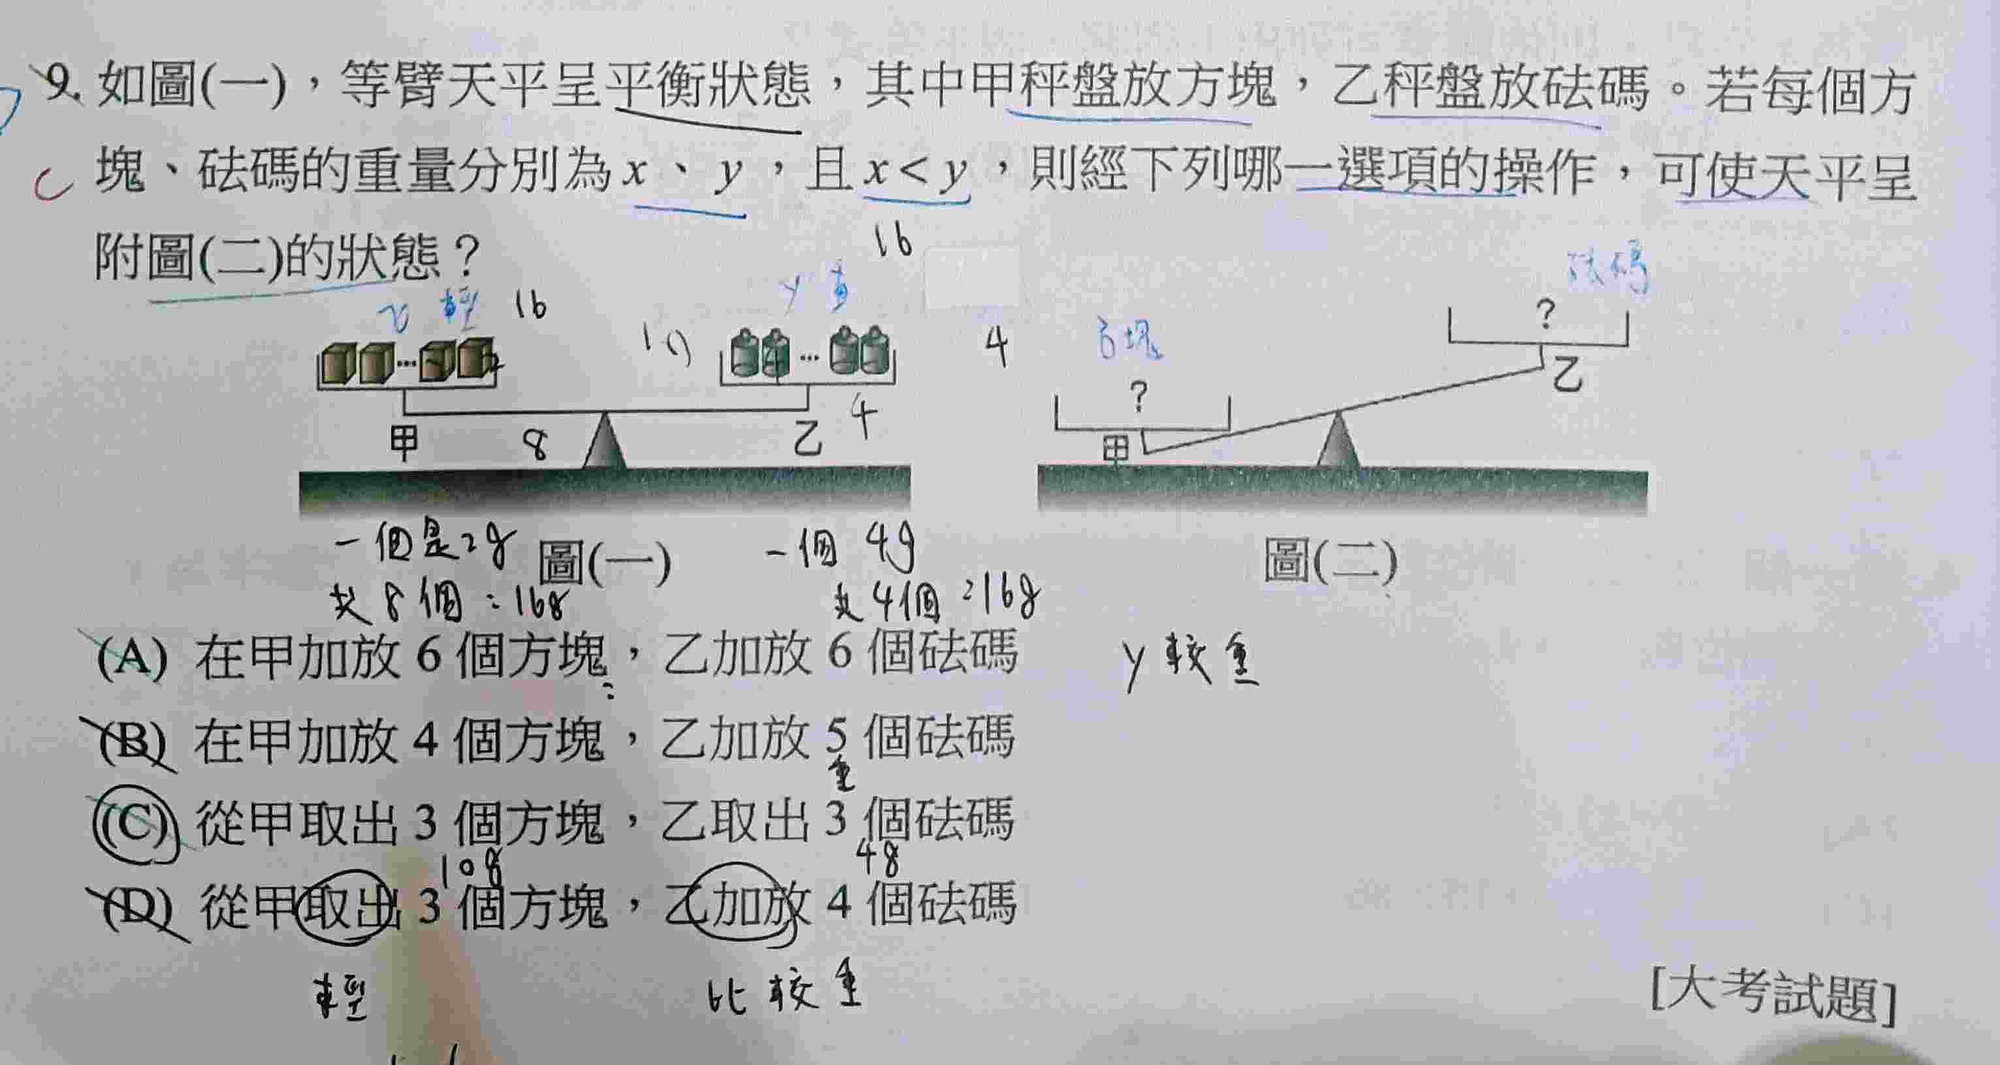 9. 如圖(一)，等臂天平呈平衡狀態，其中甲秤盤放方塊，乙秤盤放砝碼。若每個方
C 塊、砝碼的重量分別為 x、y，且 x < y，則經下列哪一選項的操作，可使天平呈
附圖(二)的狀態？
16
砝碼
x 輕 16
y 重
?
方塊
4
乙
?
甲 8 乙 4
甲
一個是2g 圖(一) 一個 4g
圖(二)
共8個=16g 共4個=16g
(A) 在甲加放 6 個方塊，乙加放 6 個砝碼 y 較重
(B) 在甲加放 4 個方塊，乙加放 5 個砝碼
重
(C) 從甲取出 3 個方塊，乙取出 3 個砝碼
10g 48
(D) 從甲取出 3 個方塊，乙加放 4 個砝碼
輕 比較重
[大考試題]